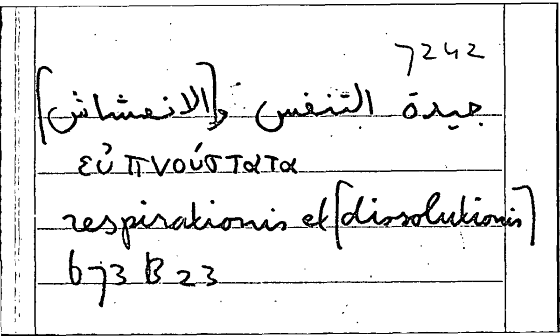 7242
جيدة التنفس و[الانفشاش]
εὐπνούστατα
respirationis et [dissolutionis]
673 B 23